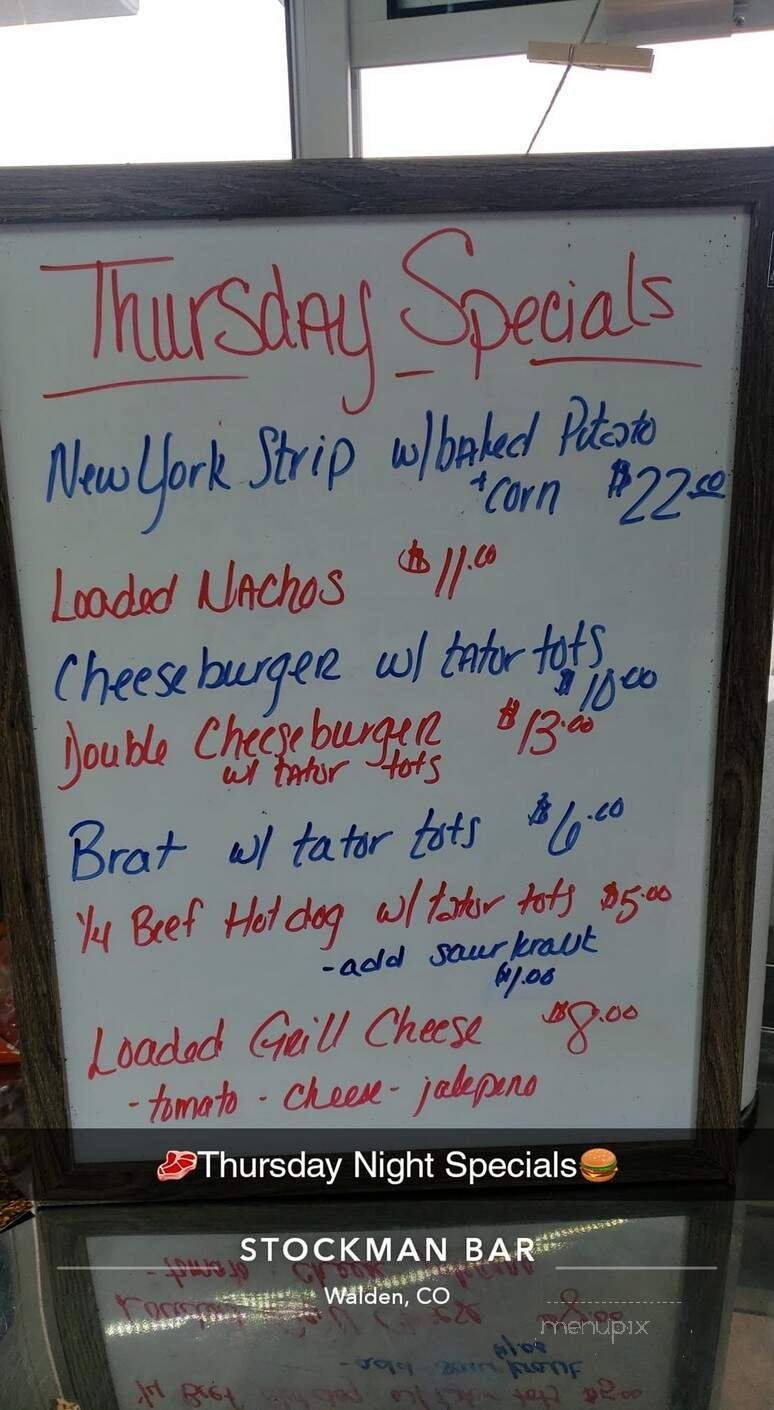 Thursday Specials
New York Strip w/ baked Potato
+ corn $22.50
Loaded Nachos $11.00
Cheeseburger w/ tator tots
$10.00
Double Cheeseburger $13.00
w/ tator tots
Brat w/ tator tots $6.00
1/4 Beef Hotdog w/ tator tots $5.00
- add saurkraut
$1.00
Loaded Grill Cheese $8.00
- tomato - cheese - jalepeno
🥩Thursday Night Specials🍔
STOCKMAN BAR
Walden, CO
menupix